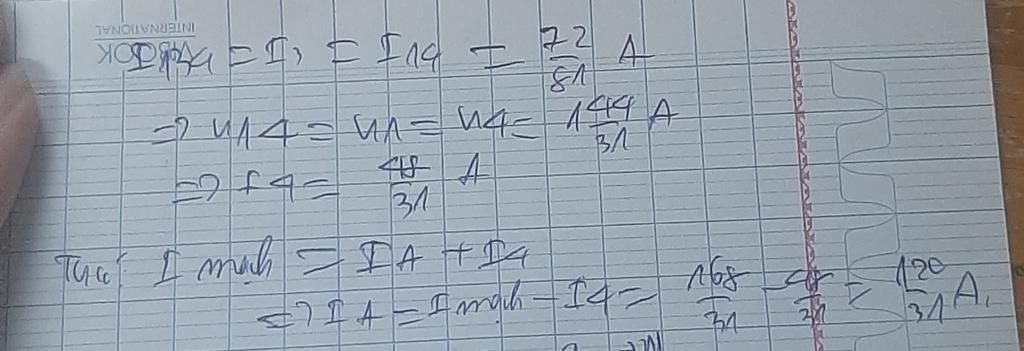 INTERNATIONAL
= I, = I14 = 72/81 A
=> U14 = U1 = U4 = 144/31 A
=> I4 = 48/31 A
I mạch = IA + I4
=> IA = I mạch - I4 = 168/31 - 48/31 = 120/31 A.